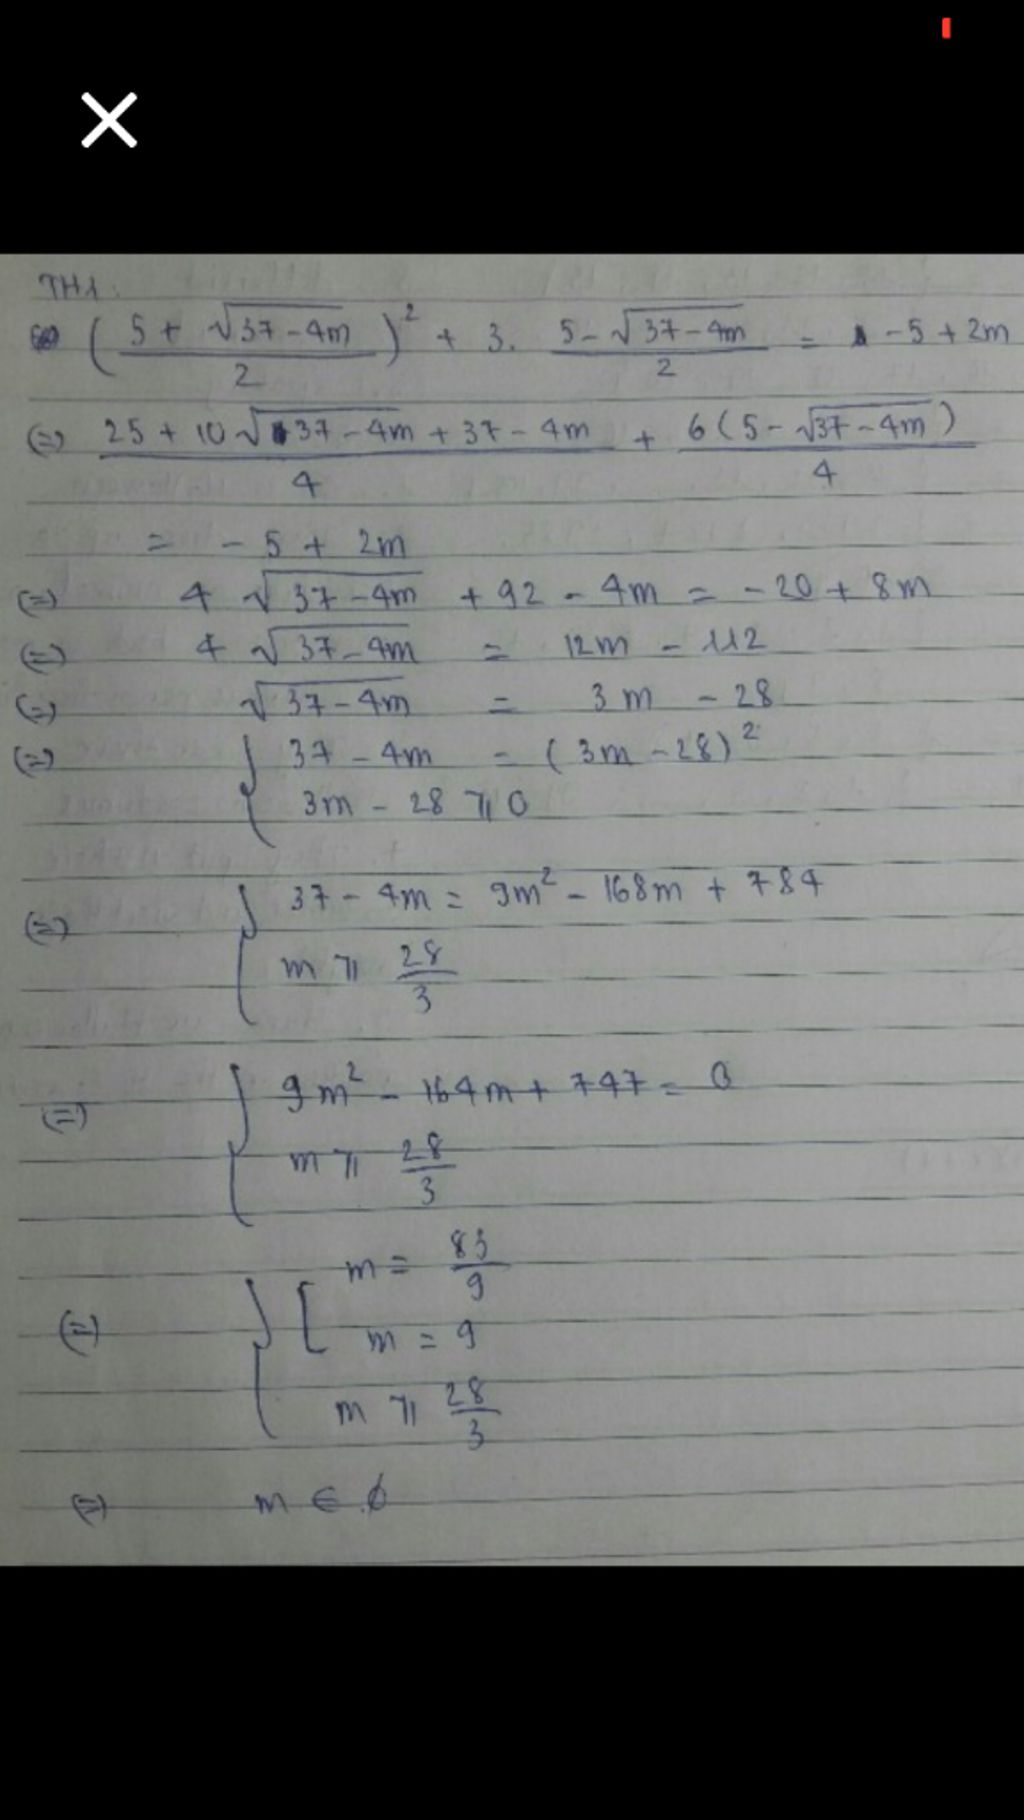 TH1:
( (5 + √(37 - 4m)) / 2 )² + 3. (5 - √(37 - 4m)) / 2 = -5 + 2m
(=) (25 + 10√(37 - 4m) + 37 - 4m) / 4 + 6(5 - √(37 - 4m)) / 4
= - 5 + 2m
(=) 4 √(37 - 4m) + 92 - 4m = - 20 + 8m
(=) 4 √(37 - 4m) = 12m - 112
(=) √(37 - 4m) = 3m - 28
(=) { 37 - 4m = (3m - 28)²
3m - 28 ⩾ 0
(=) { 37 - 4m = 9m² - 168m + 784
m ⩾ 28/3
(=) { 9m² - 164m + 747 = 0
m ⩾ 28/3
m = 83/9
(=) { [ m = 9
m ⩾ 28/3
(=) m ∈ ∅